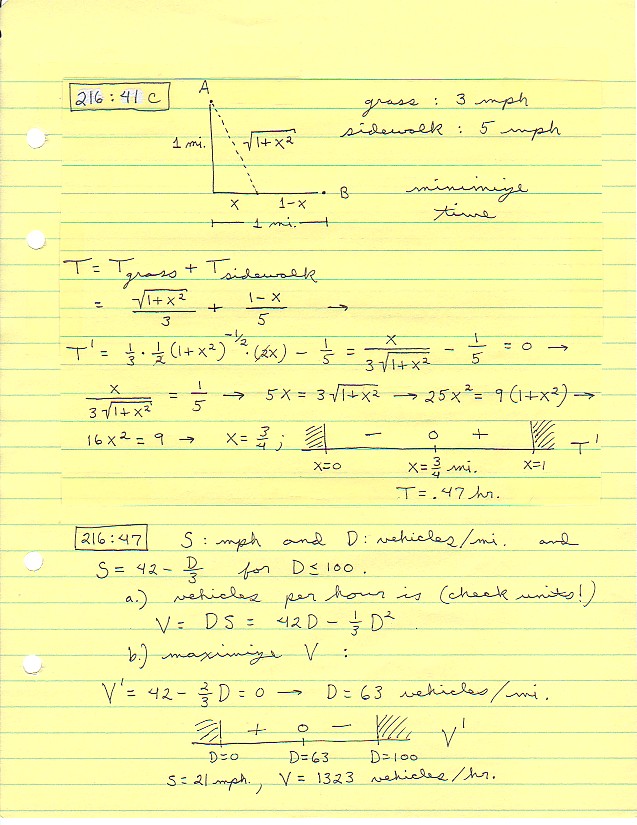 216 : 41 c
A
grass : 3 mph
sidewalk : 5 mph
1 mi.
√(1+x²)
minimize
time
B
x
1-x
1 mi.
T = T_grass + T_sidewalk
= √(1+x²)/3 + (1-x)/5 →
T' = 1/3 · 1/2 (1+x²)^(-1/2) · (2x) - 1/5 = x/(3√(1+x²)) - 1/5 = 0 →
x/(3√(1+x²)) = 1/5 → 5x = 3√(1+x²) → 25x² = 9(1+x²) →
16x² = 9 → x = 3/4 ;
- 0 + T'
x=0 x=3/4 mi. x=1
T = .47 hr.
216 : 47 S : mph and D : vehicles/mi. and
S = 42 - D/3 for D ≤ 100 .
a.) vehicles per hour is (check units!)
V = DS = 42D - 1/3 D² .
b.) maximize V :
V' = 42 - 2/3 D = 0 → D = 63 vehicles/mi.
+ 0 - V'
D=0 D=63 D=100
S = 21 mph, V = 1323 vehicles/hr.